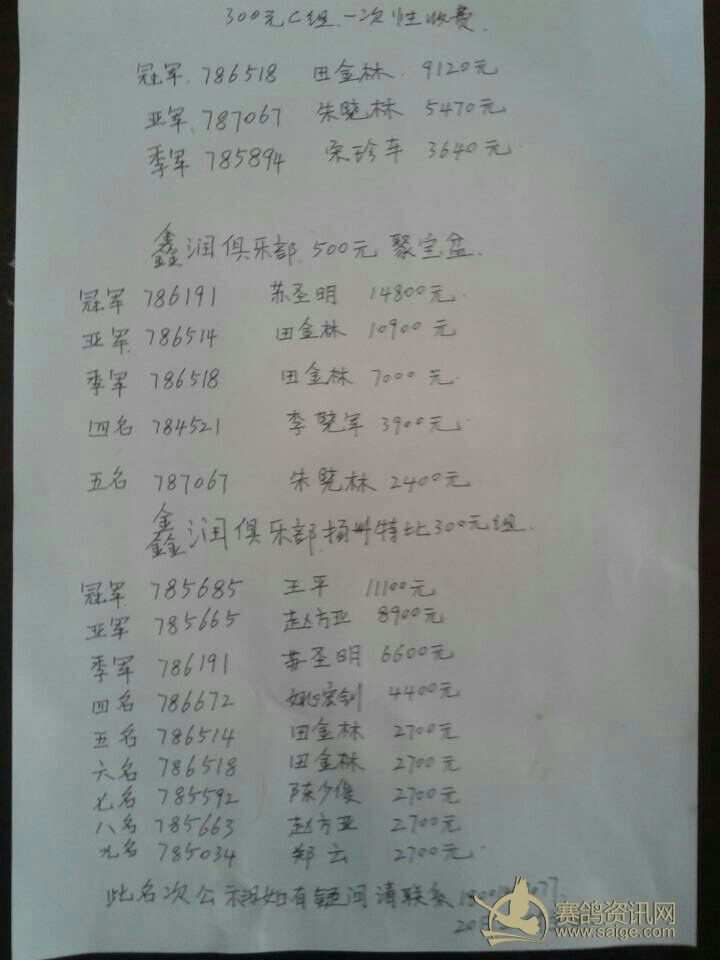 300元C组.一次性收费.
冠军.786518 田金林.9120元
亚军.787067 朱晓林5470元
季军785894 宋珍车3640元.
鑫润俱乐部.500元聚宝盆.
冠军786191 苏圣明14800元.
亚军.786514 田金林10900元.
季军786518 田金林7000元.
四名784521 李晓军3900元.
五名787067 朱晓林2400元.
鑫润俱乐部.扬州特比300元组.
冠军785685 王平11100元
亚军785665 赵方亚8900元.
季军786191 苏圣明6600元
四名786672 姚宏钊4400元
五名786514 田金林2700元
六名786518 田金林2700元
七名785592 陈少俊2700元
八名785663 赵方亚2700元
九名785034 郑云2700元.
此名次公示.如有疑问请联系
赛鸽资讯网
www.saige.com